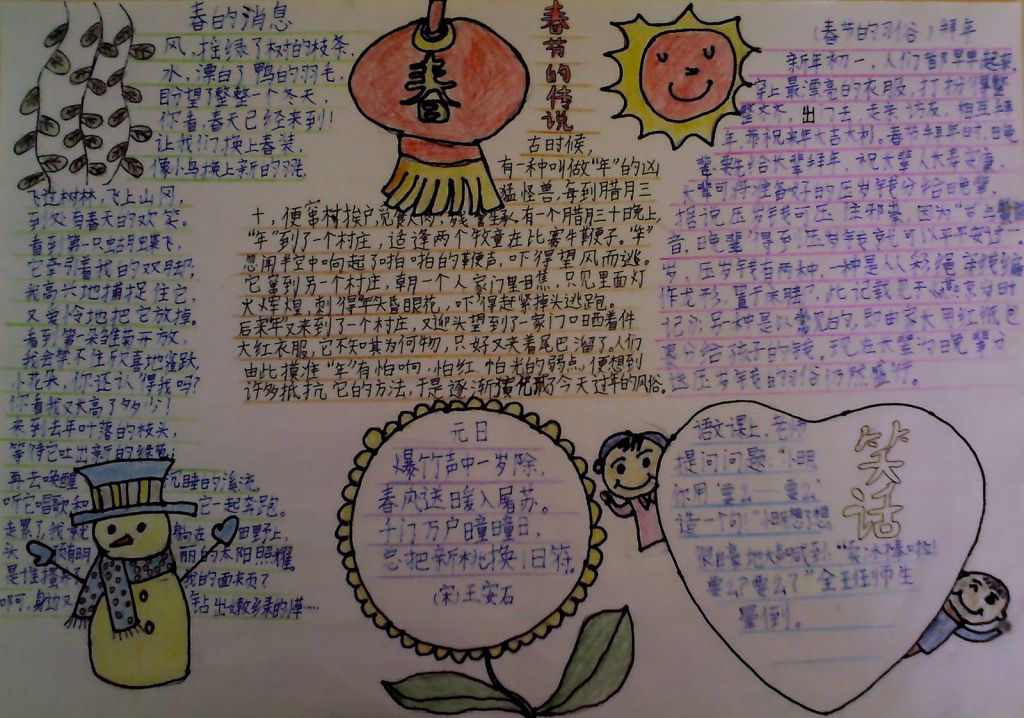 春的消息
风，摇绿了树的枝条，
水，漂白了鸭的羽毛，
盼望了整整一个冬天，
你看，春天已经来到！
让我们换上春装，
像小鸟换上新的羽毛，
飞过树林，飞上山冈，
到处有春天的欢笑。
看到第一只蝴蝶飞，
它牵引着我的双脚；
我高兴地捕捉住它，
又爱怜地把它放掉。
看到第一朵雏菊开放，
我会禁不住欣喜地雀跃，
小花朵，你还认得我吗？
你看我又长高了多少！
来到去年叶落的枝头，
等待它吐出新的绿苞；
再去唤醒沉睡的溪流
听它唱歌和它一起奔跑。
走累了，我躺在田野上，
头顶明丽的太阳照耀。
是谁搔痒了我的面
啊，身边又钻出嫩绿的
春
春节的传说
古时候，
有一种叫做“年”的凶
猛怪兽，每到腊月三
十，便窜村挨户，觅食人肉，残害生灵。有一个腊月三十日晚上，
“年”到了一个村庄，适逢两个牧童在比赛牛鞭子。“年”
忽闻半空中响起了啪啪的鞭声，吓得望风而逃。
它窜到另一个村庄，朝一个人家门里目焦，只见里面灯
火辉煌，刺得年头昏眼花，吓得赶紧掉头逃跑。
后来年又来到了一个村庄，又迎头望到了一家门口晒着件
大红衣服，它不知其为何物，只好又夹着尾巴溜了。人们
由此摸准“年”有怕响，怕红，怕光的弱点，便想到
许多抵抗它的方法，于是逐渐演化成了今天过年的风俗。
（春节的习俗）拜年
新年初一，人们都早早起来，
穿上最漂亮的衣服，打扮得整
整齐齐，出门去，走亲访友，相互拜
年，恭祝来年大吉大利。春节拜年时，晚
辈要先给长辈拜年，祝长辈人长寿安康，
长辈可将准备好的压岁钱分给晚辈，
据说压岁钱可压住邪祟，因为“岁”与“祟”谐
音，晚辈得到压岁钱就可以平平安安过一
岁，压岁钱有两种，一种是以彩绳穿线编
作龙形，置于床脚，此记载见于《燕京岁时
记》；另一种是以常见的，即由家长用红纸包
裹分给孩子的钱。现在长辈为晚辈分
送压岁钱的习俗仍然盛行。
元日
爆竹声中一岁除，
春风送日暖入屠苏。
千门万户曈曈日，
总把新桃换旧符。
（宋）王安石
笑话
语文课上，老师
提问问题：“小明
你用‘要么……要么’
造一个句！”小明想了想
很自豪地大喊到：“卖冰棒啦！
要么？要么？”全班师生
晕倒。